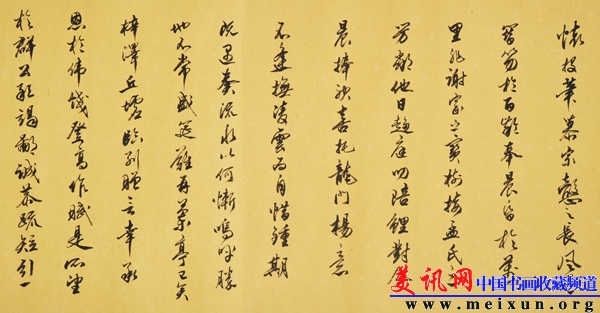 懷投筆慕宗愨之長風
簪笏於百齡奉晨昏於萬
里非謝家之寶樹接孟氏之
芳鄰他日趨庭叨陪鯉對今
晨捧袂喜托龍門楊意
不逢撫凌雲而自惜鍾期
既遇奏流水以何慚嗚呼勝
地不常盛筵難再蘭亭已矣
梓澤丘墟臨別贈言幸承
恩於偉餞登高作賦是所望
於群公敢竭鄙誠恭疏短引一
美讯网 中国书画收藏频道
www.meixun.org